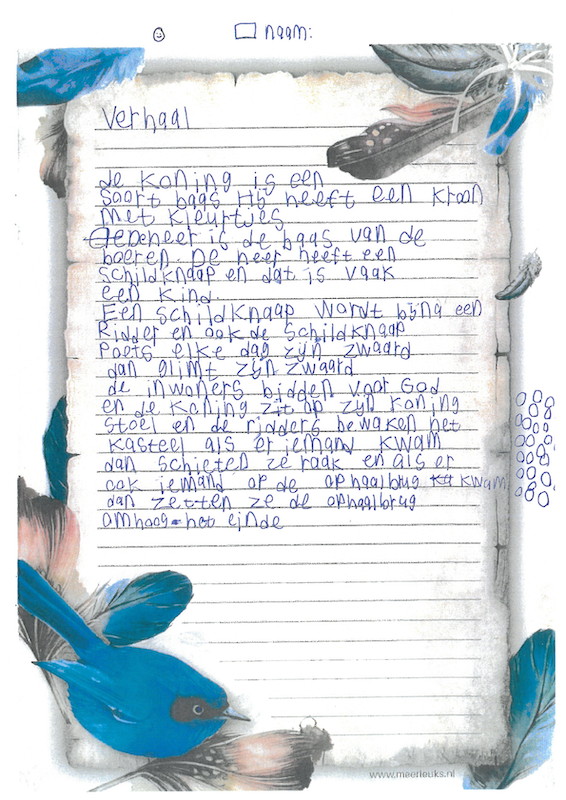 naam:
Verhaal
de koning is een
soort baas Hij heeft een kroon
met kleurtjes
De heer is de baas van de
boeren. De heer heeft een
schildknaap en dat is vaak
een kind.
Een schildknaap wordt bijna een
Ridder en ook de schildknaap
Poets elke dag zijn zwaard
dan glimt zijn zwaard
de inwoners bidden voor God
en de koning zit op zijn koning
stoel en de ridders bewaken het
kasteel als er iemand kwam
dan schieten ze raak en als er
ook iemand op de ophaalbrug kwam
dan zetten ze de ophaalbrug
omhoog het einde
www.meerleuks.nl